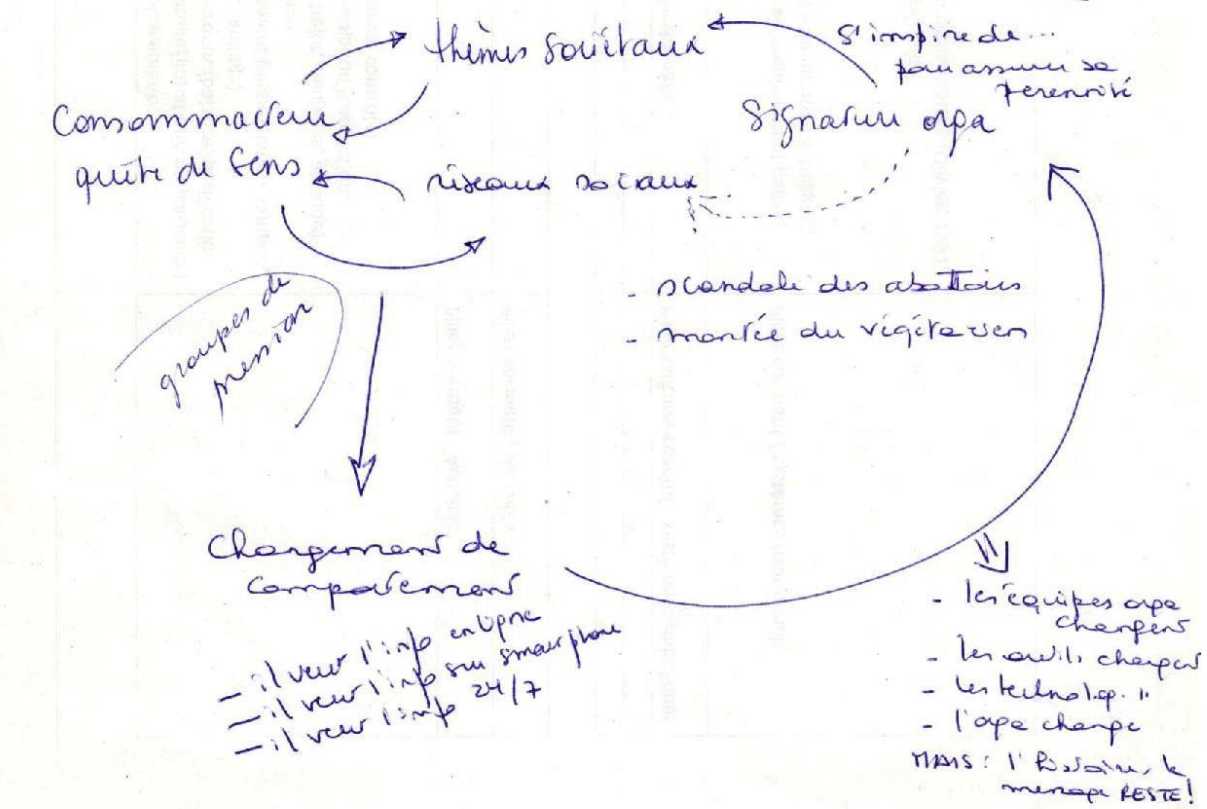 thèmes sociétaux
s'inspire de...
pour assurer sa
pérennité
Signature orga
Consommacteur
quête de sens
réseaux sociaux
- scandale des abattoirs
- montée du végétarien
groupes de
pression
Changement de
comportement
- il veut l'info en ligne
- il veut l'info sur smartphone
- il veut l'info 24/7
- les équipes orga
changent
- les outils changent
- les technolog. "
- l'orga change
MAIS : l'histoire, le
message RESTE!